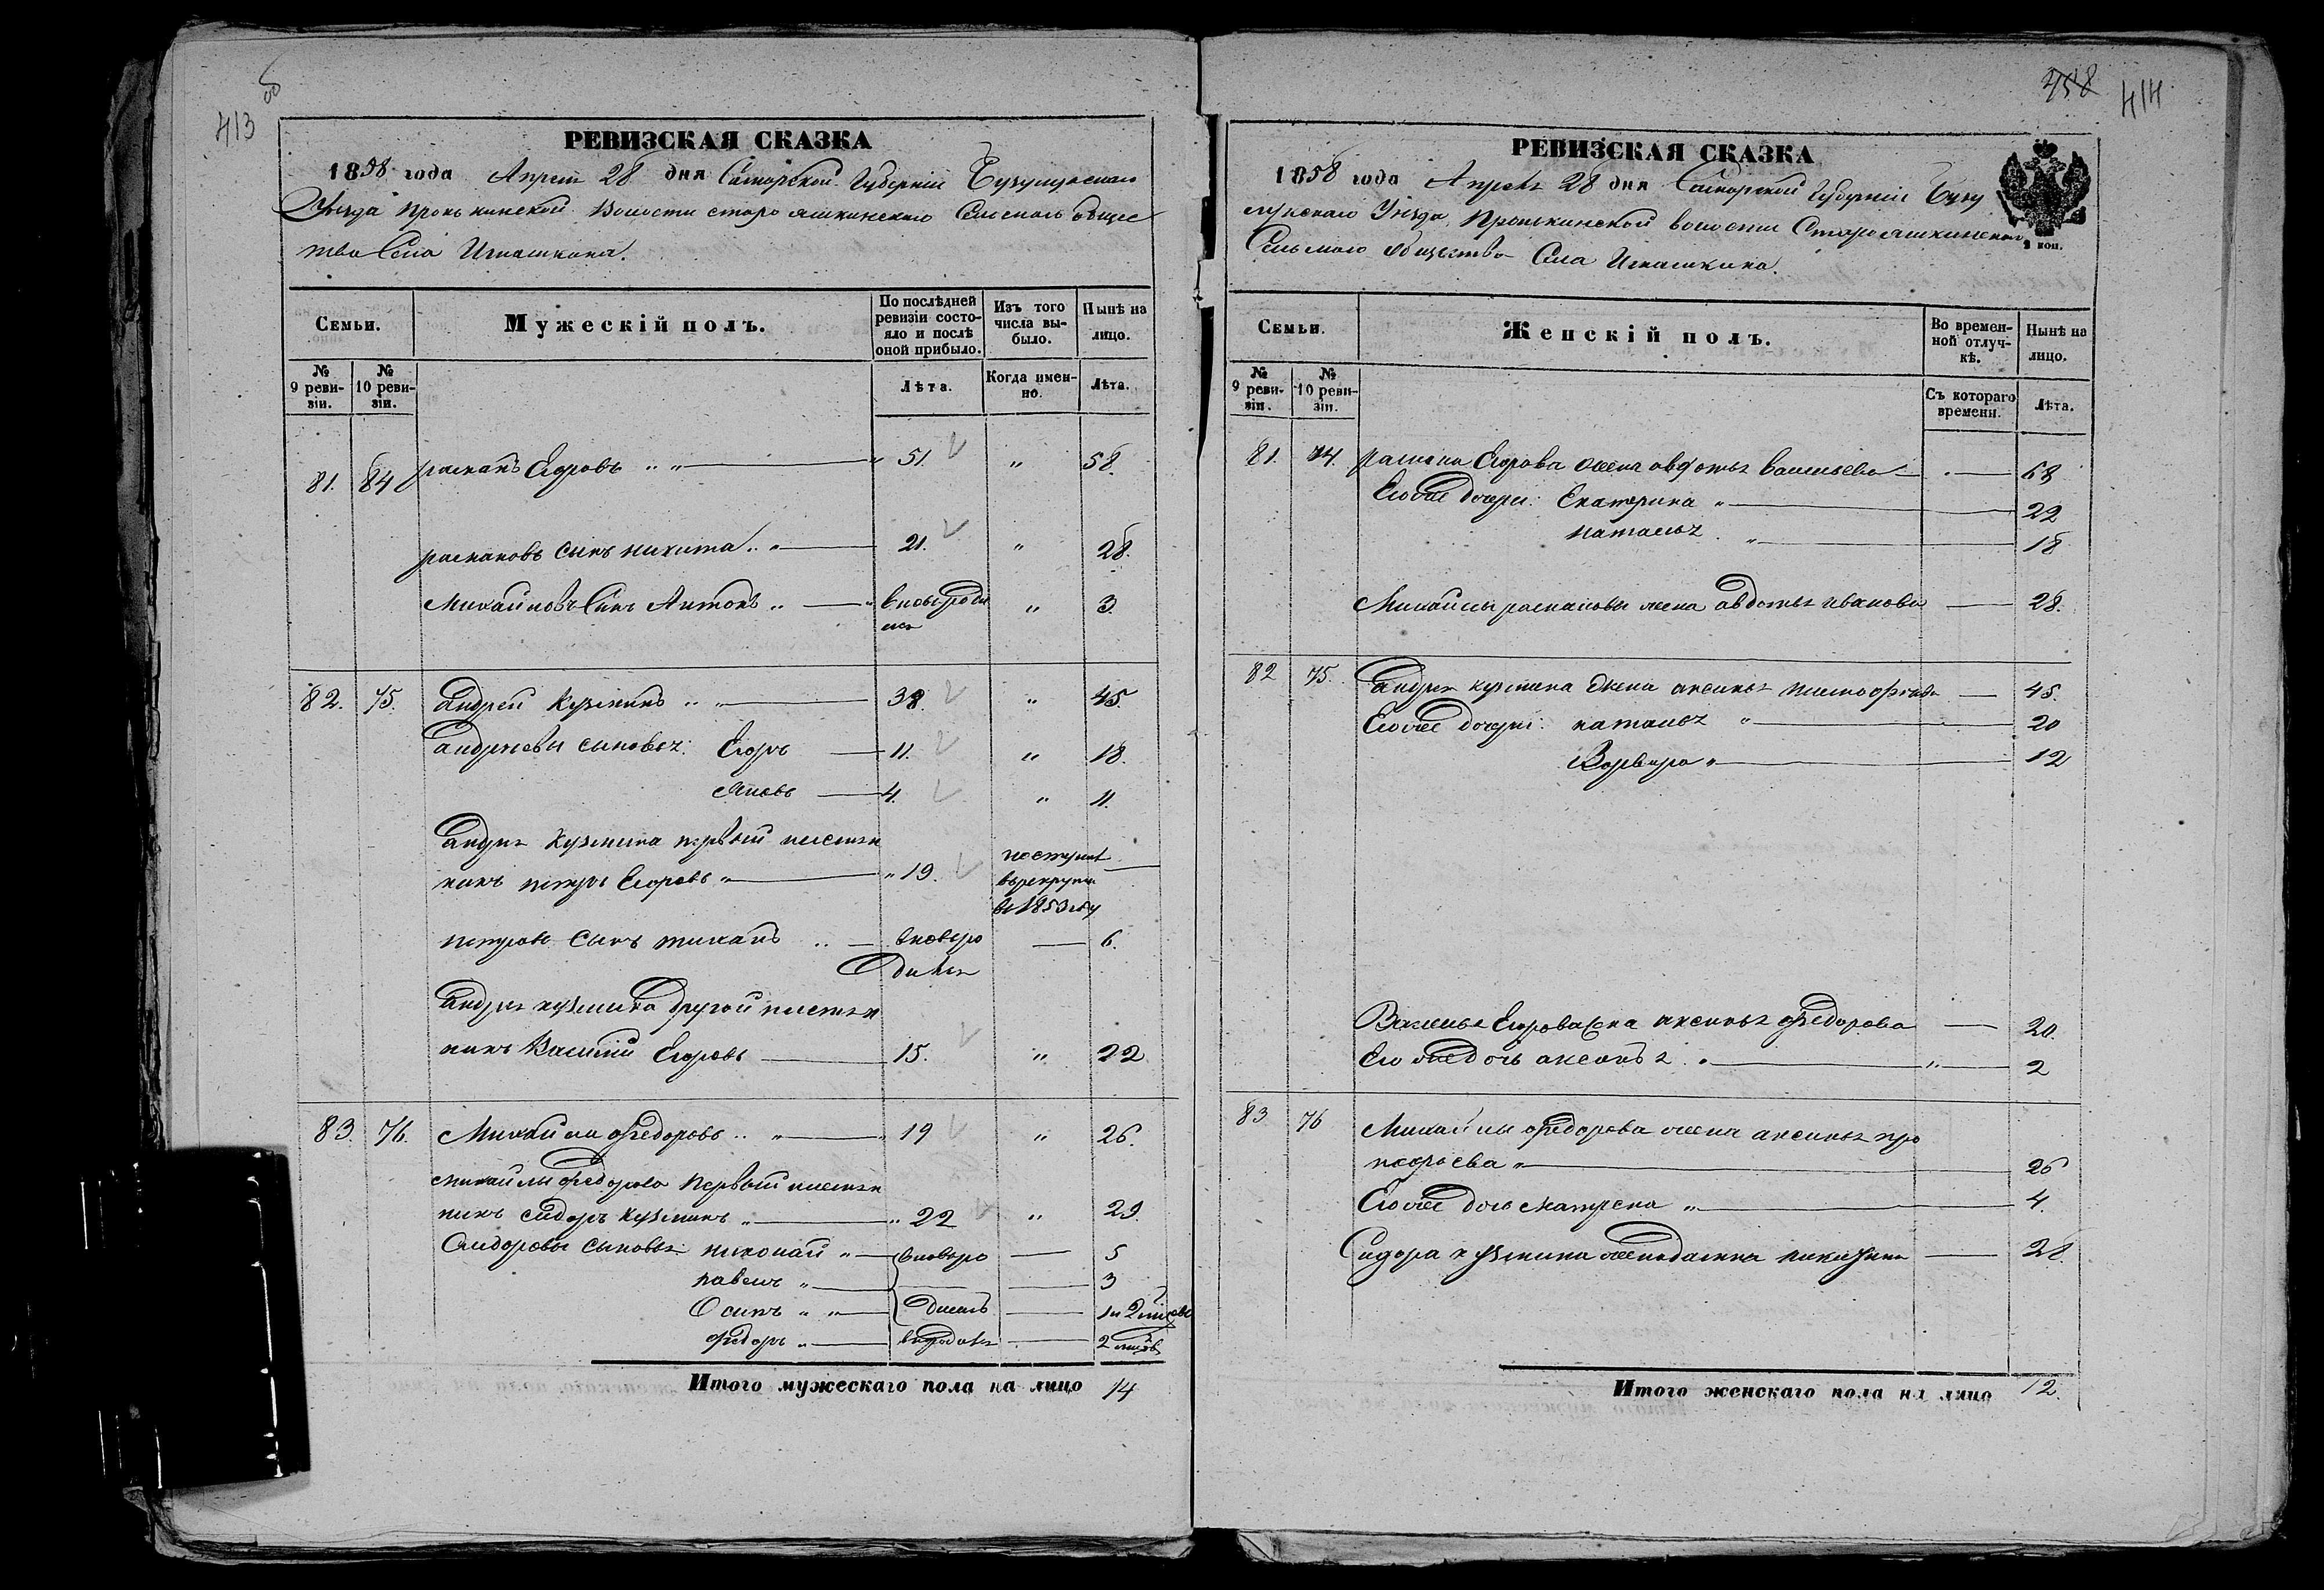 413
об
РЕВИЗСКАЯ СКАЗКА
1858 года Апреля 28 дня Самарской Губерніи Бузулускаго
Уезда Пронькинской Волости старо яшкинскаго Сельскаго общес
тва Села Игнашкина.
Семьи.
Мужескій полъ.
По послѣдней ревизіи состояло и послѣ оной прибыло.
Изъ того числа выбыло.
Нынѣ на лицо.
№ 9 ревизіи.
№ 10 ревизіи.
Лѣта.
Когда именно.
Лѣта.
81. 84 Егоровъ " " 51. " 58.
сынъ никита " " 21. " 28.
Михайловъ Сынъ Антонъ " " вновь роди 3.
лся
82. 75. андрей Кузминъ " " 38. " 45.
андреевы сыновья: Егоръ 11. " 18.
Яковъ 4. " 11.
андрея Кузмина первый племян
никъ петръ Егоровъ " " 19. поступил
в рекруты
в 1853 году
петровъ сынъ вновь ро 6.
дился
андрея кузмина другой племян
никъ Василий Егоровъ 15. " 22
83. 76. Михайла федоровъ " " 19 " 26.
михайлы федорова первый племян
никъ сидоръ кузминъ " " 22 " 29.
Сидоровы сыновья николай " вновь ро 5
павелъ " 3
Осипъ " " дились 1 и 2 месяцев
федоръ " 2 месяцев
Итого мужескаго пола на лицо 14
458 414
РЕВИЗСКАЯ СКАЗКА
1858 года Апреля 28 дня Самарской Губерніи Бузу
лускаго Уезда Пронькинской волости Старояшкинскаго
Сельскаго общества Села Игнашкина.
коп.
Семьи.
Женскій полъ.
Во временной отлучкѣ.
Нынѣ на лицо.
№ 9 ревизіи.
№ 10 ревизіи.
Съ котораго времени.
Лѣта.
81. 74. Егорова жена авдотья Васильева 68
Его же дочери: Екатерина " 22
наталья " 18
Михайлы жена авдотья иванова 28.
82 75. андрея кузмина жена аксинья 45.
Его же дочери: наталья " 20
Варвара " 12
Василья Егорова жена аксинья федорова 20.
Его же дочь " " 2
83 76 Михайлы федорова жена аксинья про
кофьева " 26
Его же дочь матрена " 4.
Сидора кузмина жена 28.
Итого женскаго пола на лицо 12.